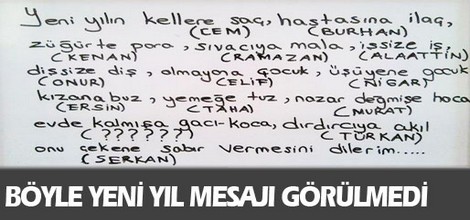 Yeni yılın kellere saç, hastasına ilaç,
(CEM) (BURHAN)
züğürte para, sıvacıya mala, işsize iş,
(KENAN) (RAMAZAN) (ALAATTİN)
dişsize diş, olmayana çocuk, üşüyene gocuk
(ONUR) (ELİF) (NİGAR)
kızana buz, yemeğe tuz, nazar değmişe hoca
(ERSİN) (TAMA) (MURAT)
evde kalmışa gacı-koca, dırdırcıya akıl
(??????) (TÜRKAN)
onu çekene sabır vermesini dilerim.....
(SERKAN)
BÖYLE YENİ YIL MESAJI GÖRÜLMEDİ